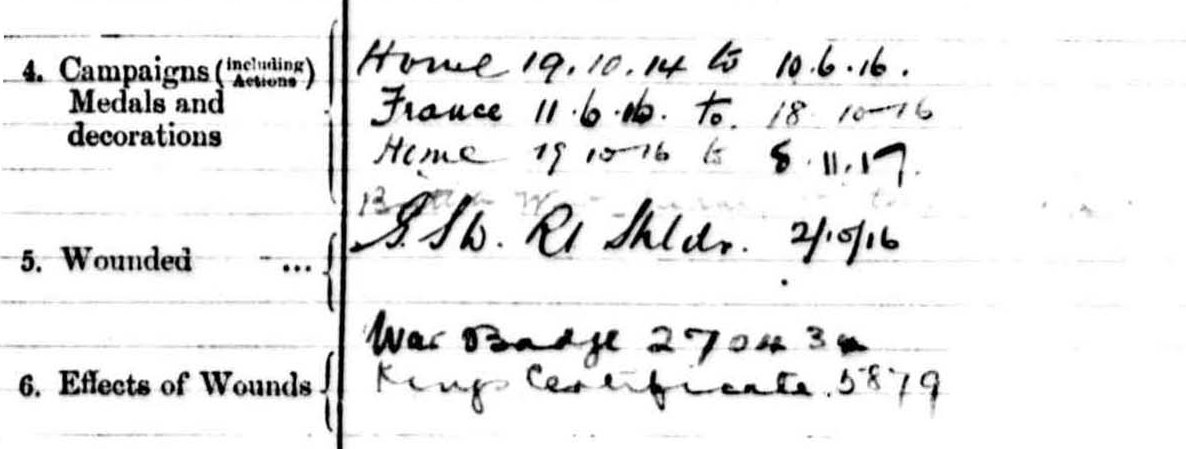 4. Campaigns (including Actions) Medals and decorations
Home 19.10.14 to 10.6.16.
France 11.6.16. to. 18 10-16
Home 19 10-16 to 8.11.17.
5. Wounded ...
G.S.W. Rt Shldr. 2/10/16
War Badge
6. Effects of Wounds
Kings Certificate. 5879